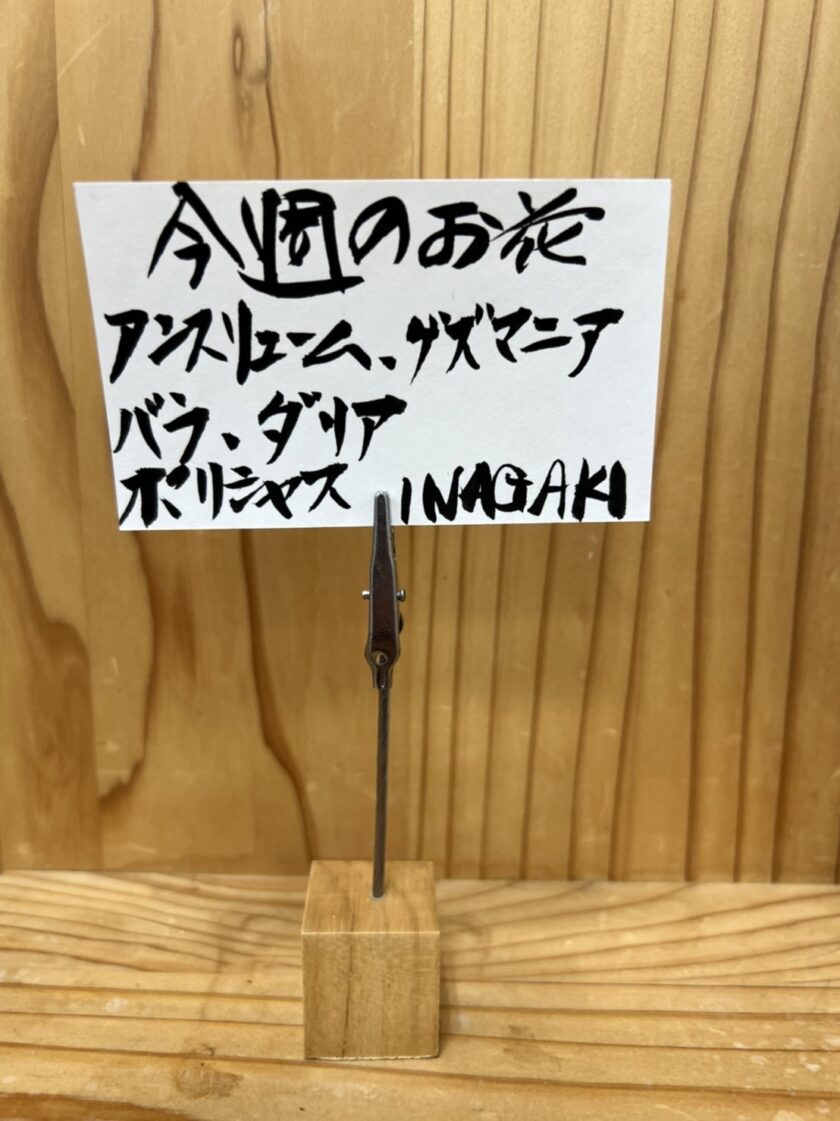 今週のお花
アンスリューム、グズマニア
バラ、ダリア
ポリシャス INAGAKI